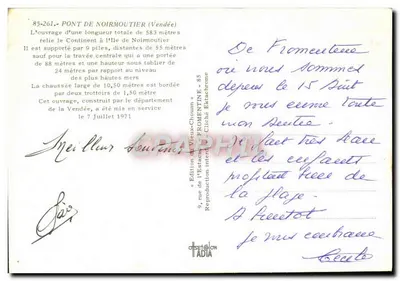 85-261.- PONT DE NOIRMOUTIER (Vendée)
L'ouvrage d'une longueur totale de 583 mètres
relie le Continent à l'Ile de Noirmoutier
Il est supporté par 9 piles, distantes de 53 mètres
sauf pour la travée centrale qui a une portée
de 88 mètres et une hauteur sous tablier de
24 mètres par rapport au niveau
des plus hautes mers
La chaussée large de 10,50 mètres est bordée
par deux trottoirs de 1,50 mètre
Cet ouvrage, construit par le département
de la Vendée, a été mis en service
le 7 Juillet 1971
Meilleur
FROMENTINE - 85
Reproduction
De Fromentine
où nous sommes
depuis le 15 Août
je vous
mon
fait très
et les enfants
profitent
de
la plage.
A bientôt
je vous embrasse